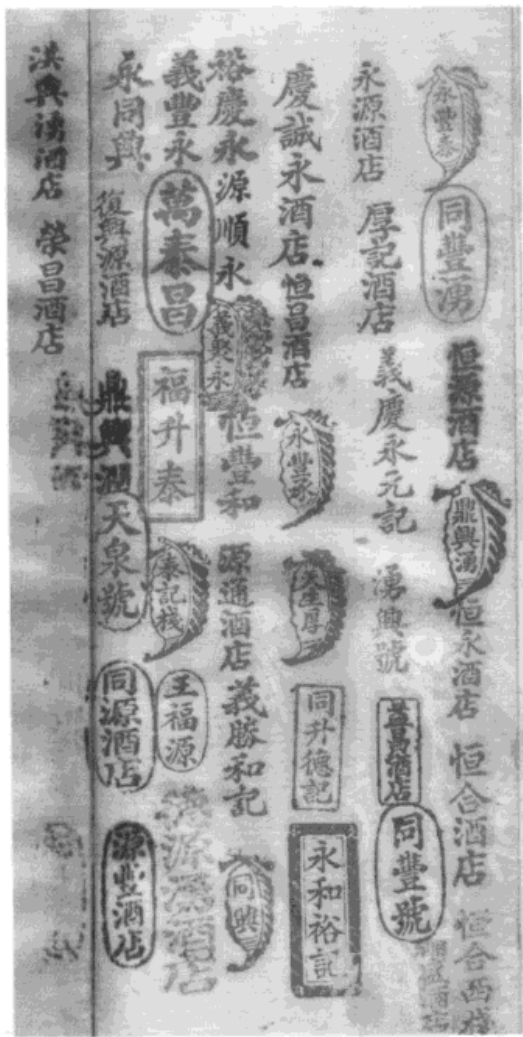 永豐泰
同豐湧
恒源酒店
鼎興湧
恒永酒店
恒合酒店
恒合西棧
永源酒店
厚記酒店
義慶永元記
湧興號
益昌酒店
同豐號
慶誠永酒店
恒昌酒店
永豐永
天生厚
同升德記
永和裕記
裕慶永
源順永
義聚永
恒豐和
源通酒店
義勝和記
同興
義豐永
萬泰昌
福升泰
泰記棧
王福源
源酒店
永同興
復興源酒店
鼎興潤
天泉號
同源酒店
源豐酒店
洪興湧酒店
榮昌酒店